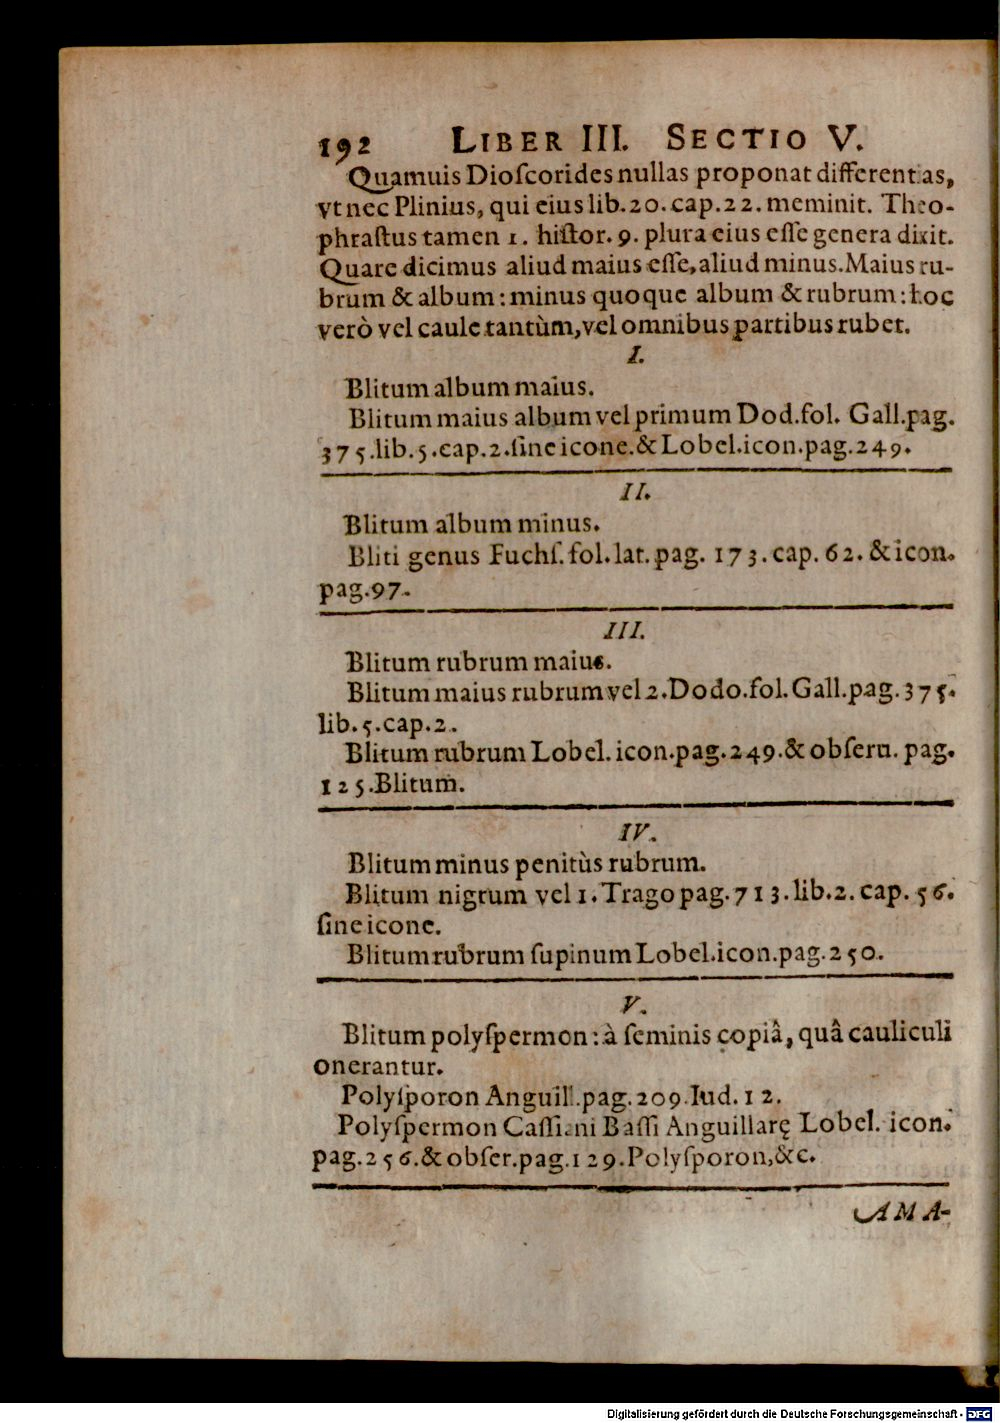 192 LIBER III. SECTIO V.
Quamuis Dioſcorides nullas proponat differentias,
vt nec Plinius, qui eius lib. 20. cap. 22. meminit. Theo-
phraſtus tamen 1. hiſtor. 9. plura eius eſſe genera dixit.
Quare dicimus aliud maius eſſe, aliud minus. Maius ru-
brum & album: minus quoque album & rubrum: hoc
verò vel caule tantùm, vel omnibus partibus rubet.
I.
Blitum album maius.
Blitum maius album vel primum Dod. fol. Gall. pag.
375. lib. 5. cap. 2. ſine icone. & Lobel. icon. pag. 249.
II.
Blitum album minus.
Bliti genus Fuchſ. fol. lat. pag. 173. cap. 62. & icon.
pag. 97.
III.
Blitum rubrum maius.
Blitum maius rubrum vel 2. Dodo. fol. Gall. pag. 375.
lib. 5. cap. 2.
Blitum rubrum Lobel. icon. pag. 249. & obſeru. pag.
125. Blitum.
IV.
Blitum minus penitùs rubrum.
Blitum nigrum vel 1. Trago pag. 713. lib. 2. cap. 56.
ſine icone.
Blitum rubrum ſupinum Lobel. icon. pag. 250.
V.
Blitum polyſpermon: à ſeminis copiâ, quâ cauliculi
onerantur.
Polyſporon Anguill. pag. 209. Iud. 12.
Polyſpermon Caſſiani Baſſi Anguillarę Lobel. icon.
pag. 256. & obſer. pag. 129. Polyſporon, &c.
AMA-
Digitalisierung gefördert durch die Deutsche Forschungsgemeinschaft - DFG